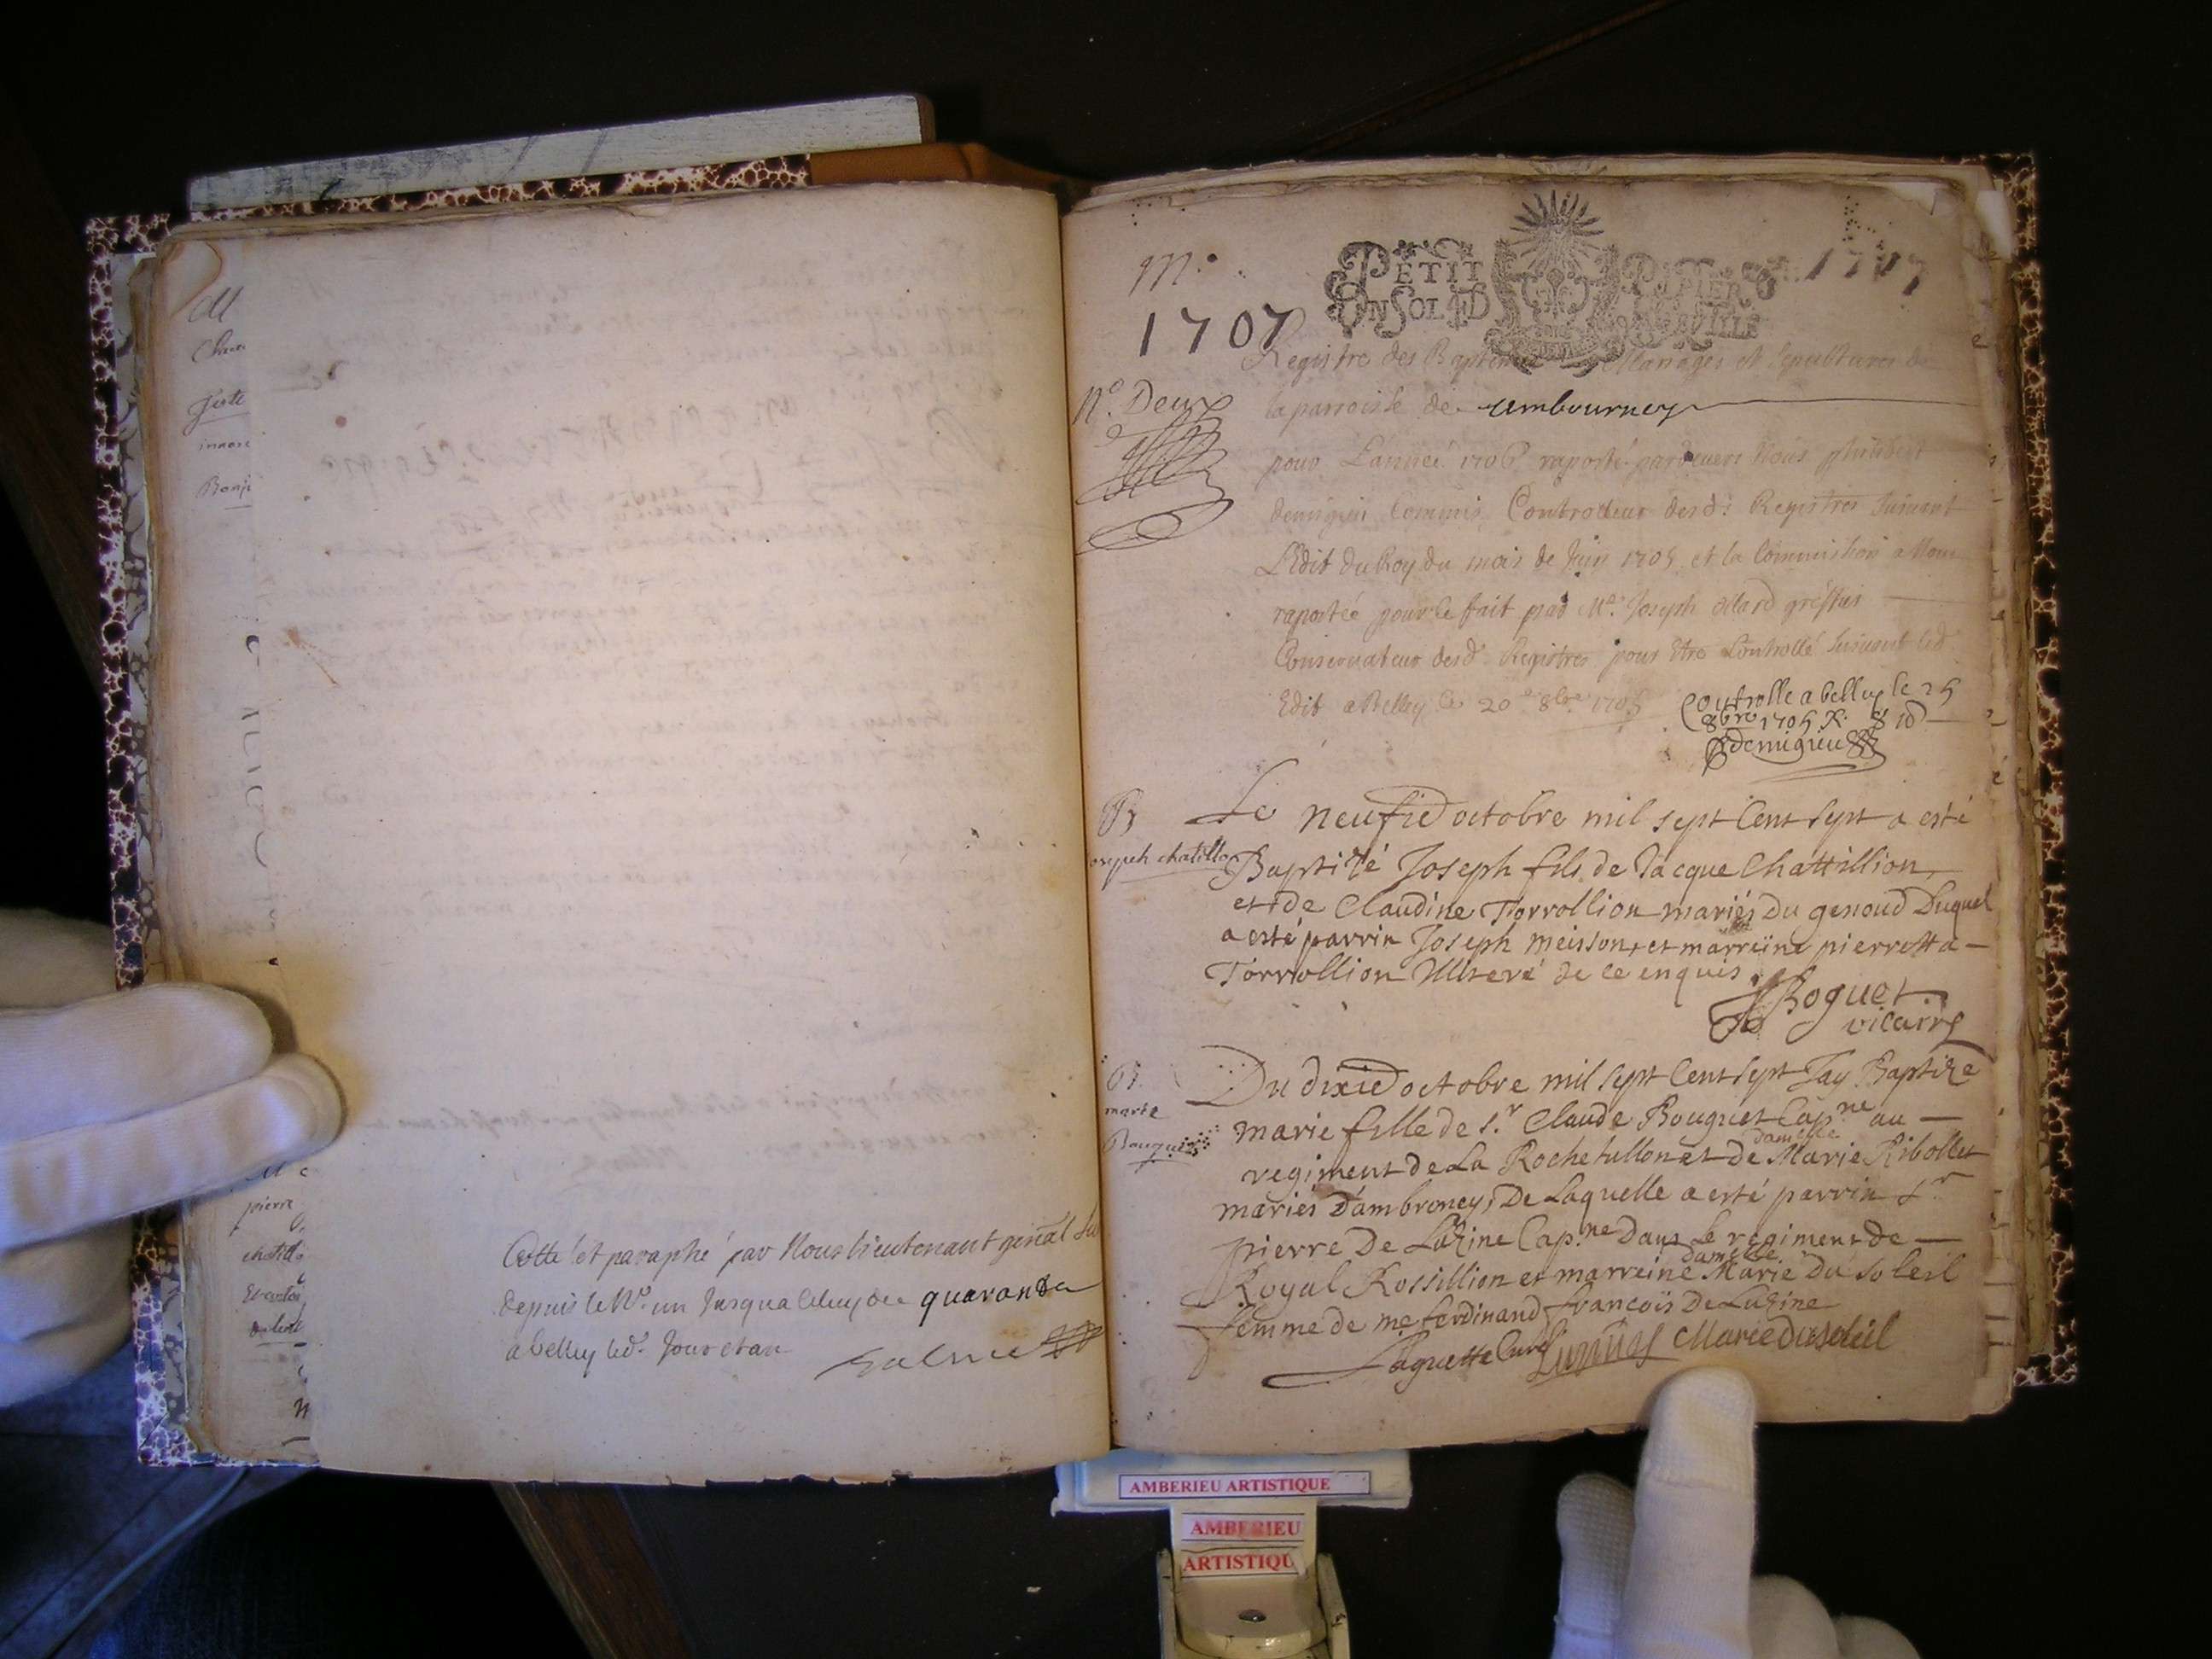 Chat
Jiste
innoce
Benj
pierre
chatillo
Cotté et paraphé par Nous lieutenant gñal
depuis le No. un Jusqua celuy de quarante
a belley led. Jour et an
M.
1707
PETIT PAPIER
UN SOL 4D
1707
Registre des Baptemes Mariages et Sepultures de
No. Deux
la parroisse de ambournay
pour L'année 1706 raporté pardevers Nous philibert
demigieu Commis Controlleur desd: Registres suivant
L'Edit du Roy du mois de Juin 1705 et la Commission a Nous
raportée pour le fait par Me. Joseph greffier
Conservateur desd. Registres pour être Controllé suivant led.
Edit a Belley le 20e 8bre 1705
Controlle a belley le 25
8bre 1705 R. 8 s
demigieu
B
Joseph chatillon
Le neufie octobre mil sept Cent sept a esté
Baptizé Joseph fils de Jacque Chattillion
et de Claudine Torrollion mariés du genoud Duquel
a esté parrin Joseph meisson et marreine pierretta
Torrollion Illiteré de ce enquis
Boguet
vicaire
B.
marie
Bouquet
Du dixie octobre mil sept Cent sept Jay Baptize
marie fille de s.r Claude Bouguet Cap.ne au
regiment de La Rochetullon et de damelle Marie Ribollet
mariés D'ambroney, De Laquelle a esté parrin s.r
pierre De Luzine Cap.ne Dans le regiment de
Royal Rossillion et marreine damelle Marie Du Soleil
femme de me ferdinand francois De Luzine
Paguette Curé Marie Dusoleil
AMBERIEU ARTISTIQUE
AMBERIEU
ARTISTIQU